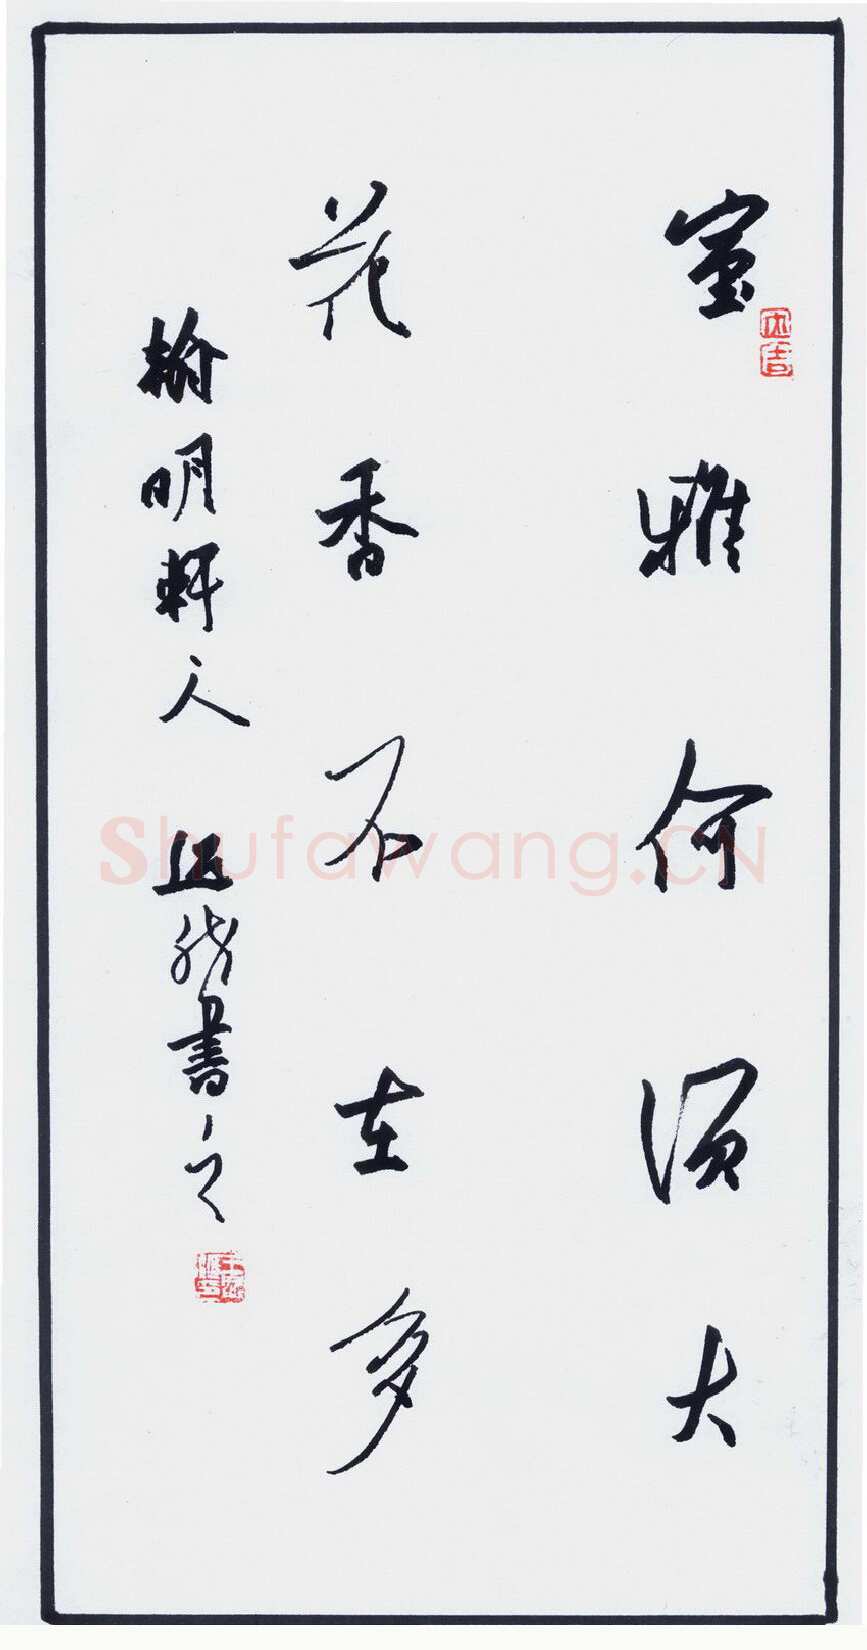 室雅何须大
花香不在多
榆明轩人 书之
Shufawang.CN